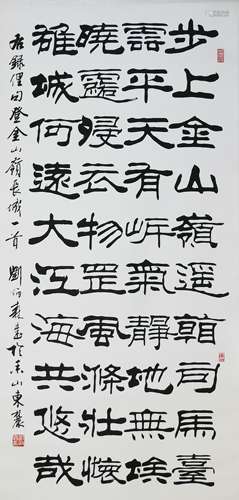 步上金山嶺遥朝司馬臺
平天有氣靜地無埃
曉侵云物罡風滌壯懷
雄城何遠大江海共悠哉
右録俚句登金山嶺長城一首 劉炳森書於山東麓